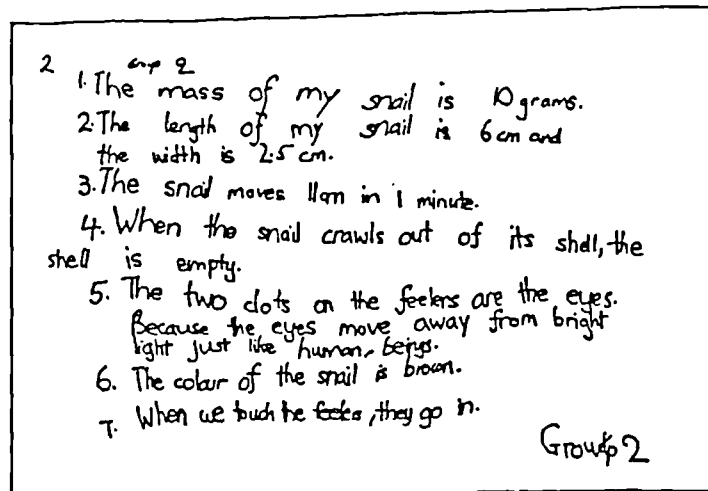 2
1. The mass of my snail is 10 grams.
2. The length of my snail is 6 cm and
the width is 2.5 cm.
3. The snail moves 11cm in 1 minute.
4. When the snail crawls out of its shell, the
shell is empty.
5. The two dots on the feelers are the eyes.
Because the eyes move away from bright
light just like human beings.
6. The colour of the snail is brown.
7. When we touch the feelers, they go in.
Group 2